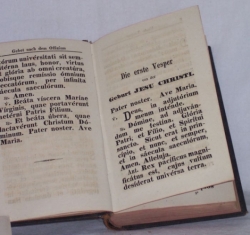 Gebet nach dem Officium
órum universitáti sit sem-
térna laus, honor, virtus
t glória ab omni creatúra,
nobísque remíssio ómnium
eccatórum, per infiníta
sǽcula sæculórum.
Amen.
Beáta víscera Maríæ
Vírginis, quæ portavérunt
Patris Fílium.
Et beáta úbera, quæ
lactavérunt Christum Dó-
minum. Pater noster. Ave
María.
Die erste Vesper
Geburt JESU CHRISTI.
Pater noster. Ave María.
Deus, in adjutórium
meum inténde.
Dómine, ad adjuván-
dum me festína. Glória
Patri, et Fílio, et Spirítui
Sancto. Sicut erat in prin-
cípio, et nunc, et semper,
et in sǽcula sæculórum.
Amen. Allelúja.
Ant. Rex pacíficus magni-
ficátus est, cujus vultum
desíderat univérsa terra.